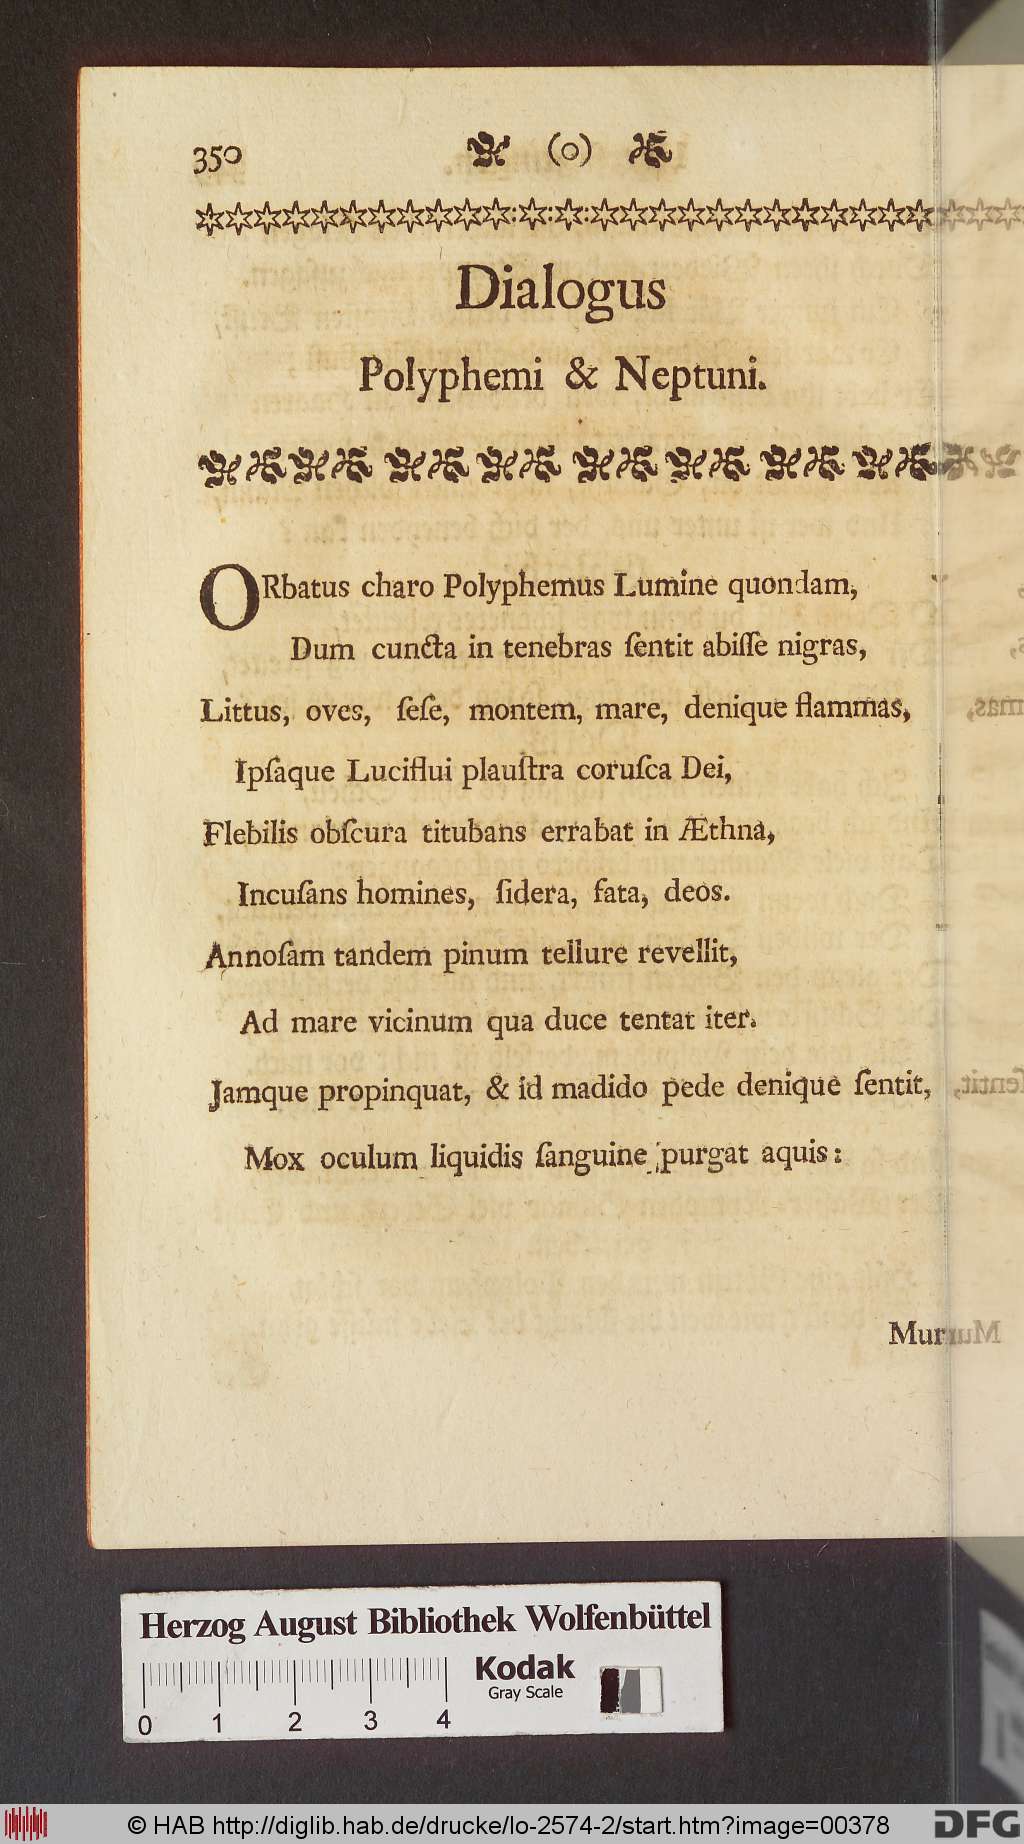 350 (o)
Dialogus
Polyphemi & Neptuni.
ORbatus charo Polyphemus Lumine quondam,
Dum cuncta in tenebras ſentit abiſſe nigras,
Littus, oves, ſeſe, montem, mare, denique flammas,
Ipſaque Luciflui plauſtra coruſca Dei,
Flebilis obſcura titubans errabat in Æthna,
Incuſans homines, ſidera, fata, deos.
Annoſam tandem pinum tellure revellit,
Ad mare vicinum qua duce tentat iter.
Jamque propinquat, & id madido pede denique ſentit,
Mox oculum liquidis ſanguine purgat aquis:
Mur
Herzog August Bibliothek Wolfenbüttel
Kodak
Gray Scale
0 1 2 3 4
© HAB http://diglib.hab.de/drucke/lo-2574-2/start.htm?image=00378
DFG